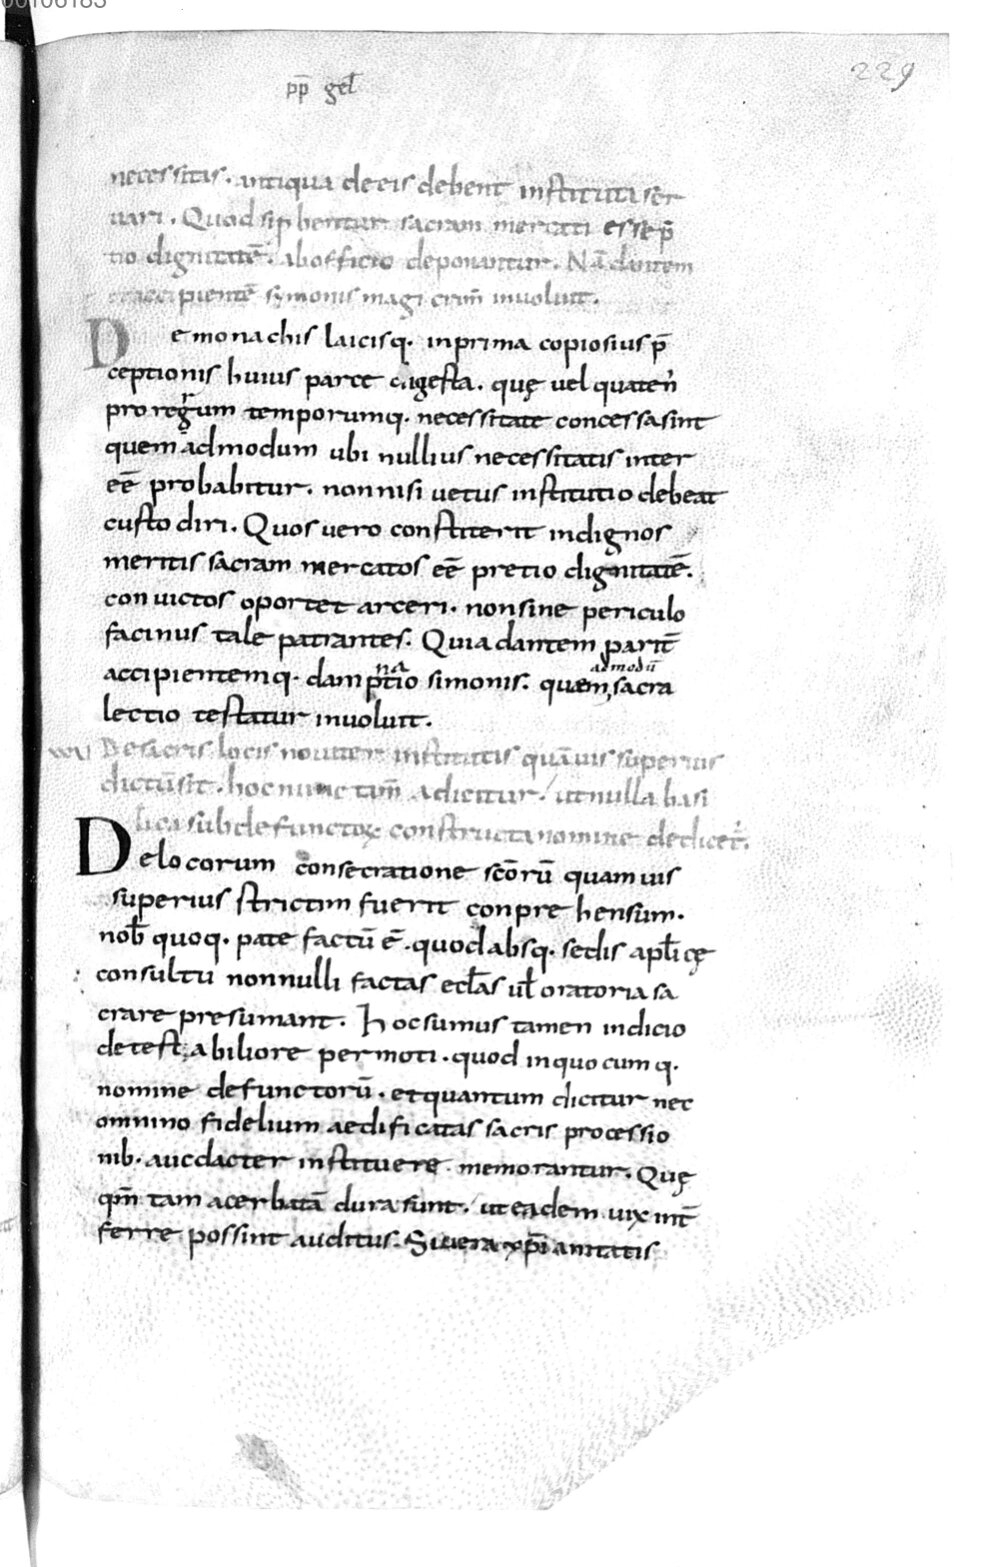 00106183
229
pp̄ gel̄
necessitas. antiqua de eis debent instituta ser
uari. Quod si phentur sacram mercati esse p̄
tio dignitatē. ab officio deponantur. Nā dantem
accipientē symonis magi crim̄ inuoluit.
De monachis laicisq. inprima copiosius p̄
ceptionis huius parte digesta. quę uel quaten̄
pro regum temporumq. necessitate concessa sint
quem admodum ubi nullius necessitatis inter
eē probabitur. non nisi uetus institutio debeat
custodiri. Quos uero constiterit indignos
meritis sacram mercatos eē pretio dignitatē.
conuictos oportet arceri. non sine periculo
facinus tale patrantes. Quia dantem parit̄
na admodū
accipientemq. damptio simonis. quem, sacra
lectio testatur inuoluit.
De sacris locis nouiter institutis quāuis superius
dictū sit. hoc nunc tam̄ adicitur. ut nulla basi
lica sub defunctoꝝ constructa nomine dedicet̄.
De locorum consecratione scōrū quamuis
superius strictim fuerit conprehensum.
nob̄ quoq. pate factū ē. quod absq. sedis apl̄icę
consultu nonnulli factas ecl̄as ul̄ oratoria sa
crare presumant. Hoc sumus tamen indicio
detestabiliore permoti. quod in quocumq.
nomine defunctorū. et quantum dicitur nec
omnino fidelium aedificatas sacris processio
nib. audacter instituere memorantur. Quę
qm̄ tam acerba tā dura sunt. ut eadem uix int̄
ferre possint auditus. Si uera xp̄ianitatis